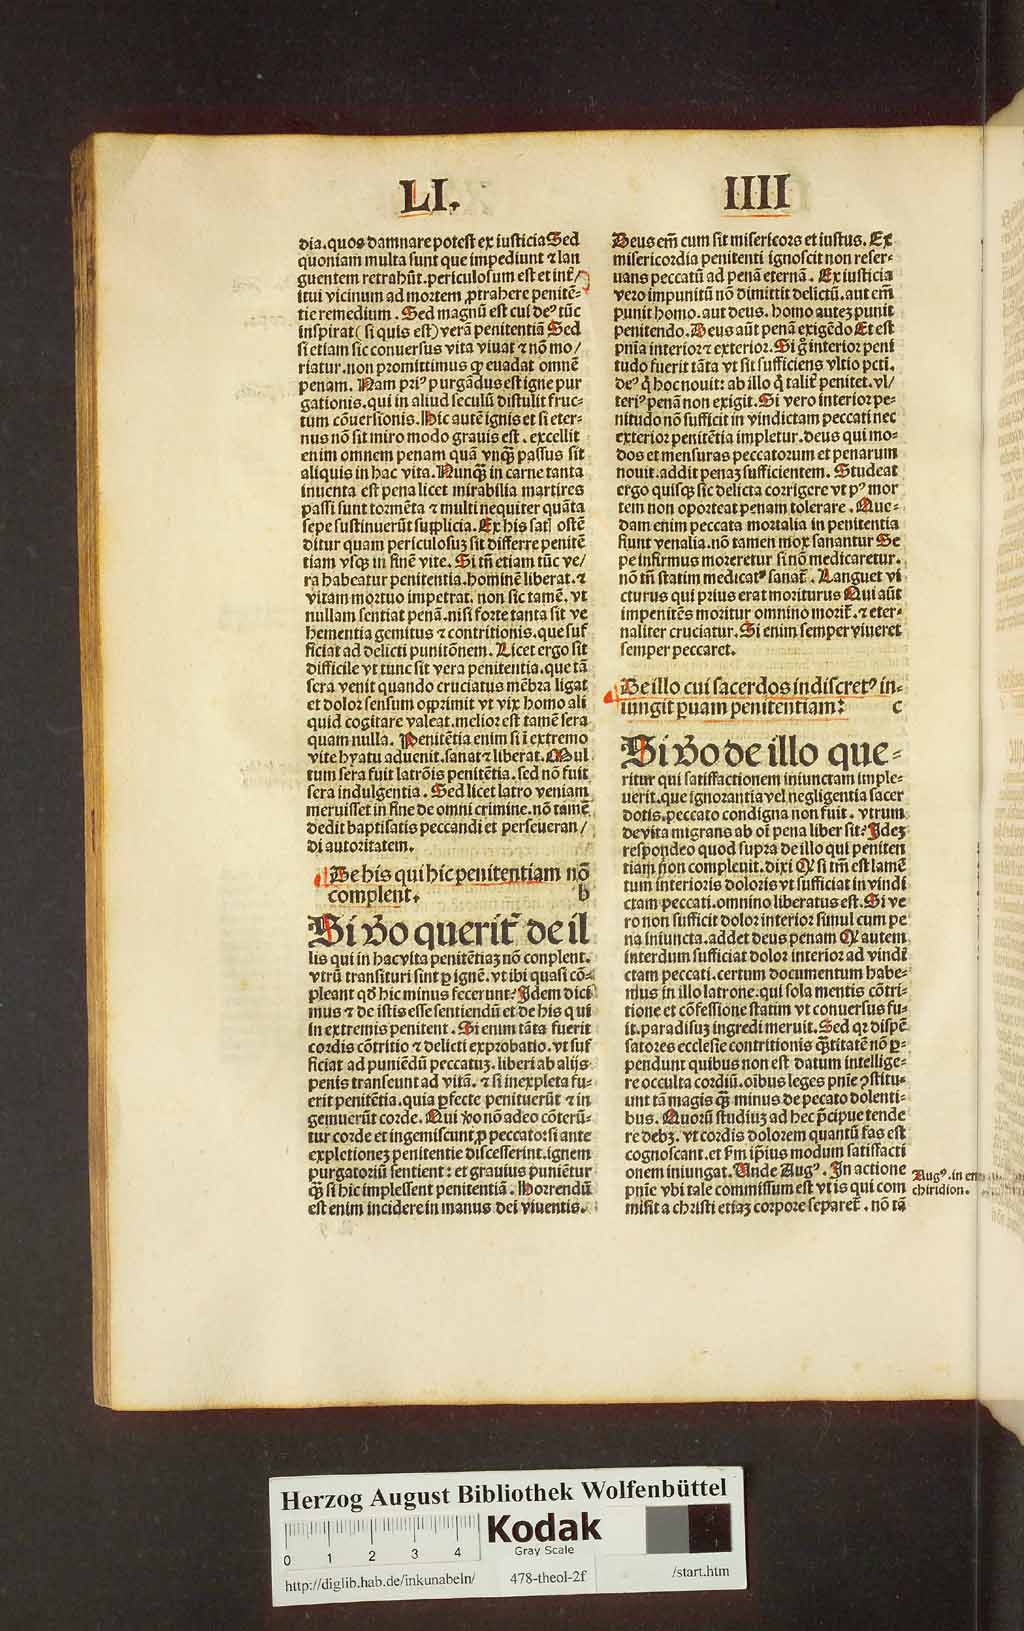 LI.
IIII
dia.quos damnare potest ex iusticia Sed
quoniam multa sunt que impediunt ⁊ lan
guentem retrahūt.periculosum est et inte/
itui vicinum ad mortem ꝓtrahere penitē-
tie remedium. Sed magnū est cui deꝰ tūc
inspirat (si quis est) verā penitentiā Sed
si etiam sic conuersus vita viuat ⁊ nō mo/
riatur.non promittimus ꝙ euadat omnē
penam. Nam priꝰ purgādus est igne pur
gationis.qui in aliud seculū distulit fruc-
tum cōuersionis.Hic autē ignis et si eter-
nus nō sit miro modo grauis est. excellit
enim omnem penam quā vnqꝫ passus sit
aliquis in hac vita.Nunqꝫ in carne tanta
inuenta est pena licet mirabilia martires
passi sunt tormēta ⁊ multi nequiter quāta
sepe sustinuerūt supplicia. Ex his satꝭ ostē
ditur quam periculosuꝫ sit differre penitē
tiam vsqꝫ in finē vite. Si tn̄ etiam tūc ve/
ra habeatur penitentia.hominē liberat.⁊
vitam mortuo impetrat. non sic tamē. vt
nullam sentiat penā.nisi forte tanta sit ve
hementia gemitus ⁊ contritionis.que suf
ficiat ad delicti punitōnem. Licet ergo sit
difficile vt tunc sit vera penitentia.que tā
sera venit quando cruciatus mēbra ligat
et dolor sensum opprimit vt vix homo ali
quid cogitare valeat.melior est tamē sera
quam nulla. Penitētia enim si ī extremo
vite hyatu aduenit.sanat ⁊ liberat. Mul
tum sera fuit latrōis penitētia.sed nō fuit
sera indulgentia. Sed licet latro veniam
meruisset in fine de omni crimine.nō tamē
dedit baptisatis peccandi et perseueran/
di autoritatem.
De his qui hic penitentiam nō
complent. b
Si v̄o querit᷑ de il
lis qui in hac vita penitētiaꝫ nō conplent.
vtrū transituri sint ꝑ ignē.vt ibi quasi cō-
pleant qd̄ hic minus fecerunt? Idem dici
mus ⁊ de istis esse sentiendū et de his qui
in extremis penitent. Si enim tāta fuerit
cordis cōtritio ⁊ delicti exprobatio.vt suf
ficiat ad puniēdū peccatuꝫ. liberi ab alijs
penis transeunt ad vitā. ⁊ si inexpleta fu-
erit penitētia.quia ꝑfecte penituerūt ⁊ in
gemuerūt corde. Qui v̄o nō adeo cōterū-
tur corde et ingemiscunt ꝓ peccato:si ante
expletioneꝫ penitentie discesserint.ignem
purgatoriū sentient: et grauius puniētur
qꝫ̄ si hic implessent penitentiā. Horrendū
est enim incidere in manus dei viuentis.
Deus em̄ cum sit misericors et iustus. Ex
misericordia penitenti ignoscit non reser-
uans peccatū ad penā eternā. Ex iusticia
vero impunitū nō dimittit delictū.aut em̄
punit homo.aut deus. homo auteꝫ punit
penitendo.Deus aūt penā exigēdo Et est
pn̄ia interior ⁊ exterior. Si gͦ interior peni
tudo fuerit tāta vt sit sufficiens vltio pcti.
deꝰ q̇ hoc nouit: ab illo q̇ talit᷑ penitet.vl/
teriꝰ penā non exigit. Si vero interior pe-
nitudo nō sufficit in vindictam peccati nec
exterior penitētia impletur.deus qui mo-
dos et mensuras peccatorum et penarum
nouit.addit penaꝫ sufficientem. Studeat
ergo quisqꝫ sic delicta corrigere vt pꝰ mor
tem non oporteat penam tolerare. Que-
dam enim peccata mortalia in penitentia
fiunt venalia.nō tamen mox sanantur Se
pe infirmus moreretur si nō medicaretur.
nō tn̄ statim medicatꝰ sanat᷑. Languet vi
cturus qui prius erat moriturus Qui aūt
impenitēs moritur omnino morit᷑.⁊ eter-
naliter cruciatur. Si enim semper viueret
semper peccaret.
De illo cui sacerdos indiscretꝰ in-
iungit ꝑuam penitentiam: c
Si v̄o de illo que-
ritur qui satisfactionem iniunctam imple-
uerit.que ignorantia vel negligentia sacer
dotis.peccato condigna non fuit. vtrum
de vita migrans ab oī pena liber sit? Ideꝫ
respondeo quod supra de illo qui peniten
tiam non compleuit.dixi Qꝛ si tm̄ est lamē
tum interioris doloris vt sufficiat in vindi
ctam peccati.omnino liberatus est.Si ve
ro non sufficit dolor interior simul cum pe
na iniuncta.addet deus penam Qꝛ autem
interdum sufficiat dolor interior ad vindi
ctam peccati.certum documentum habe-
mus in illo latrone.qui sola mentis cōtri-
tione et cōfessione statim vt conuersus fu-
it.paradisuꝫ ingredi meruit. Sed qꝛ dispē
satores ecclesie contritionis qꝫ̄titatē nō ꝑ-
pendunt quibus non est datum intellige-
re occulta cordiū.oībus leges pn̄ie ꝯstitu-
unt tā magis qꝫ̄ minus de pecato dolenti-
bus. Quorū studiuꝫ ad hec p̄cipue tende
re debꝫ. vt cordis dolorem quantū fas est
cognoscant.et s̄m ip̄ius modum satisfacti
onem iniungat. Unde Augꝰ. In actione
pn̄ie vbi tale commissum est vt is qui com
misit a christi etiaꝫ corpore separet᷑. nō tā
Augꝰ.in en
chiridion.
Herzog August Bibliothek Wolfenbüttel
0 1 2 3 4
Kodak
Gray Scale
http://diglib.hab.de/inkunabeln/ 478-theol-2f /start.htm